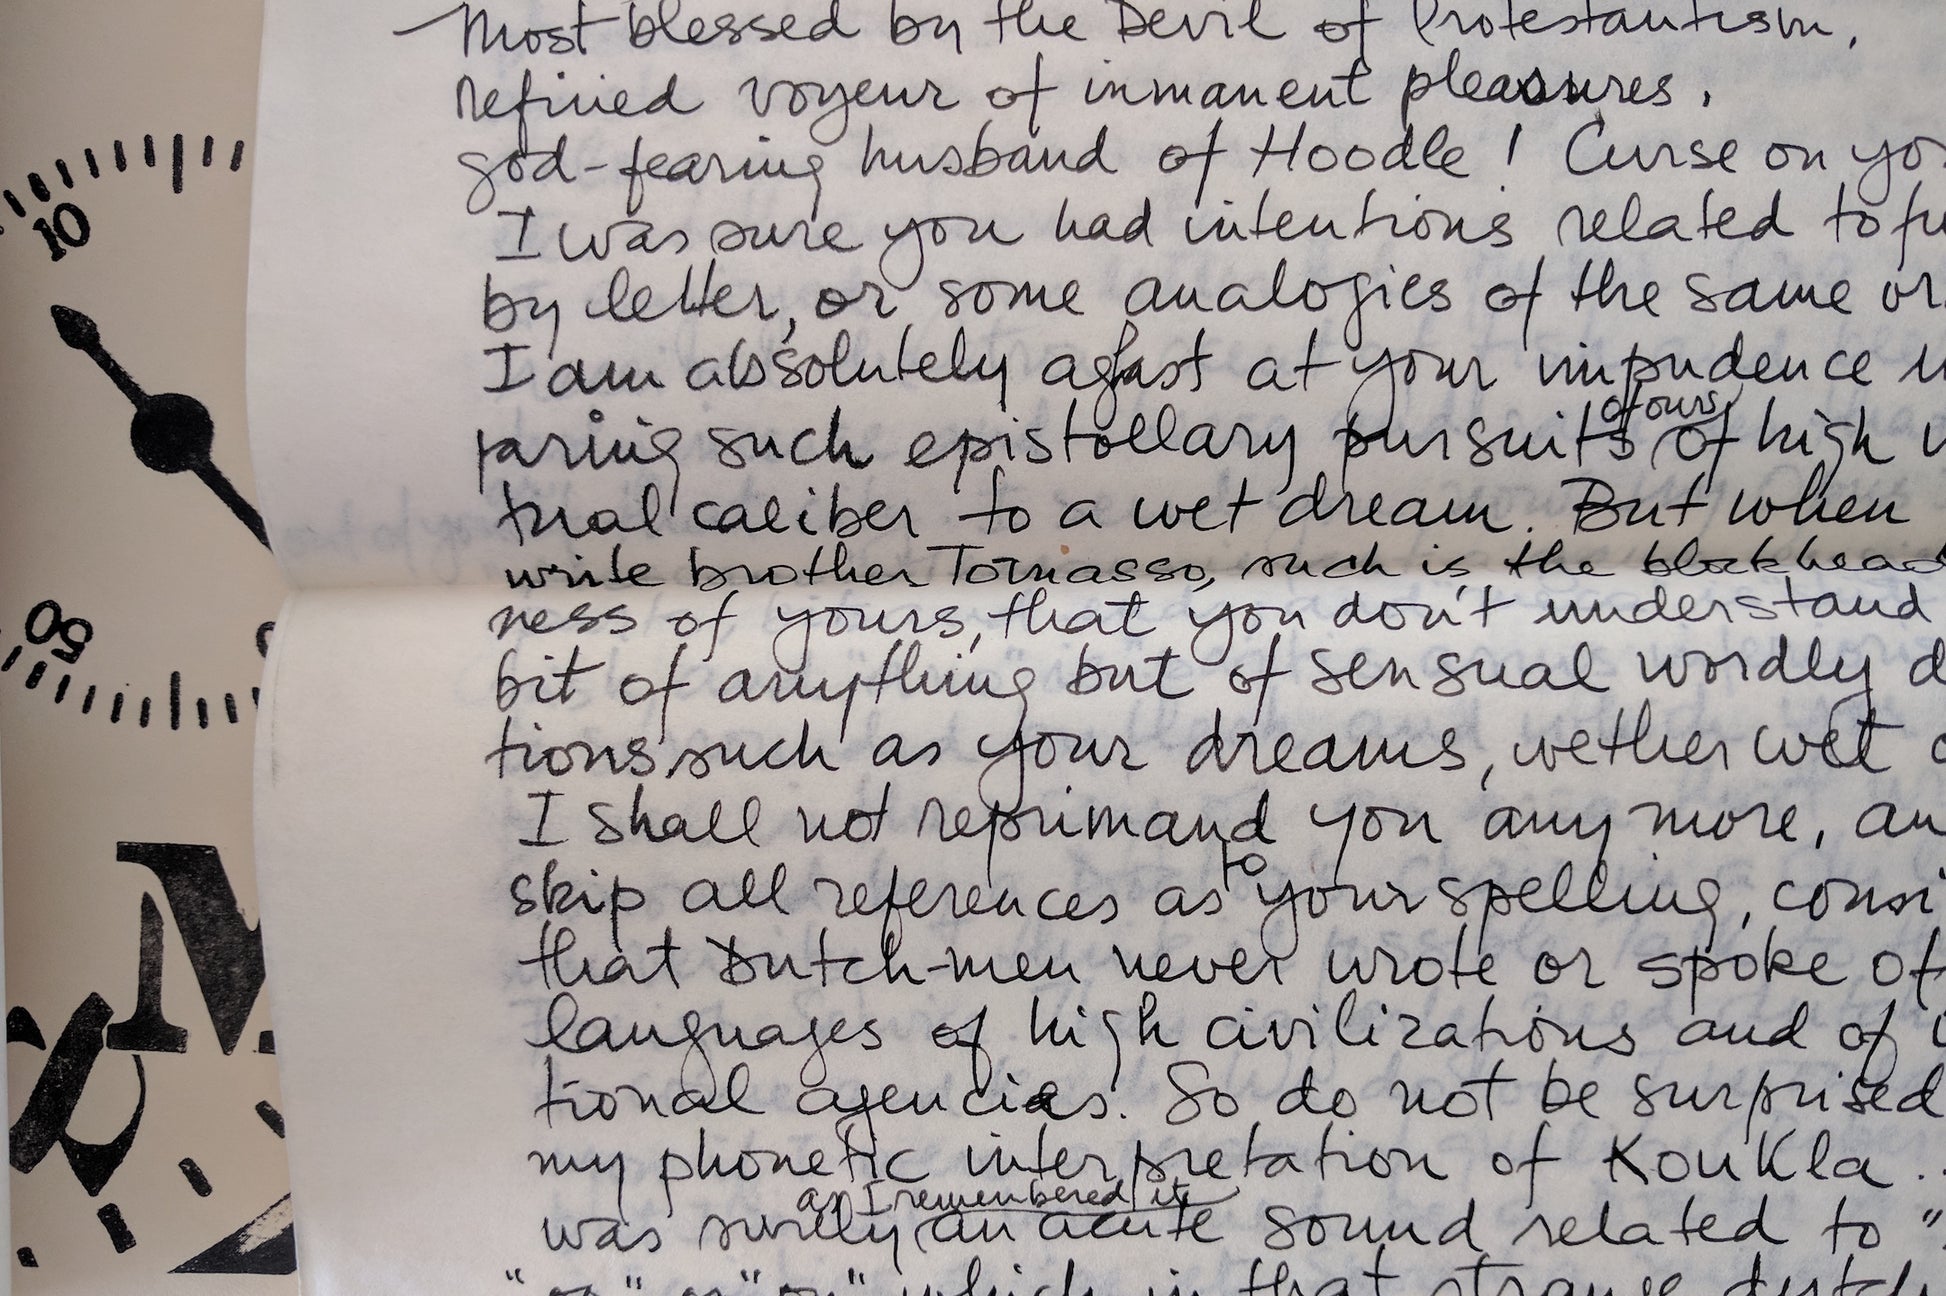 Most blessed by the Devil of Protestantism,
refined voyeur of inmanent pleasures,
god-fearing husband of Hoodle! Curse on yo
I was sure you had intentions related to fu
by letter, or some analogies of the same or
I am absolutely aghast at your impudence
paring such epistollary pursuits of ours of high
tual caliber to a wet dream. But when
write brother Tomasso, such is the blockhead
ness of yours, that you don't understand
bit of anything but of sensual wordly d
tions such as your dreams, wether wet
I shall not reprimand you any more, an
skip all references as to your spelling, consi
that Dutch-men never wrote or spoke of
languages of high civilizations and of i
tional agencies. So do not be surprised
my phonetic interpretation of KouKla.
as I remembered it
was surely an acute sound related to "
which in that strange dutch
10
50
M
&